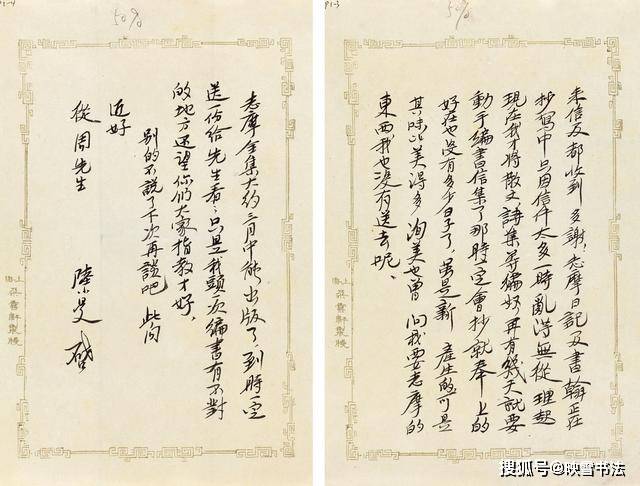 P1-3
50%
来信及都收到 多謝，志摩日記及書翰正在
抄寫中 只因信件太多一時亂得無從理起
現在我才將散文，詩集等編好 再有幾天就要
動手編書信集了 那時一定會抄就奉上的
好在也沒有多少日子了，虽是新產生的可是
其味比美得多 洵美也曾向我要志摩的
東西我也沒有送去呢、
上海 朵雲軒製牋
P1-4
50%
志摩全集大約三月中能出版了 到時一定
送一份給先生看；只是我頭一次編書有不對
的地方还望你們大家指教才好，
別的不說了下次再談吧 此问
近好
從周先生
陸小曼 啟
上海 朵雲軒製牋
搜狐号@映雪书法